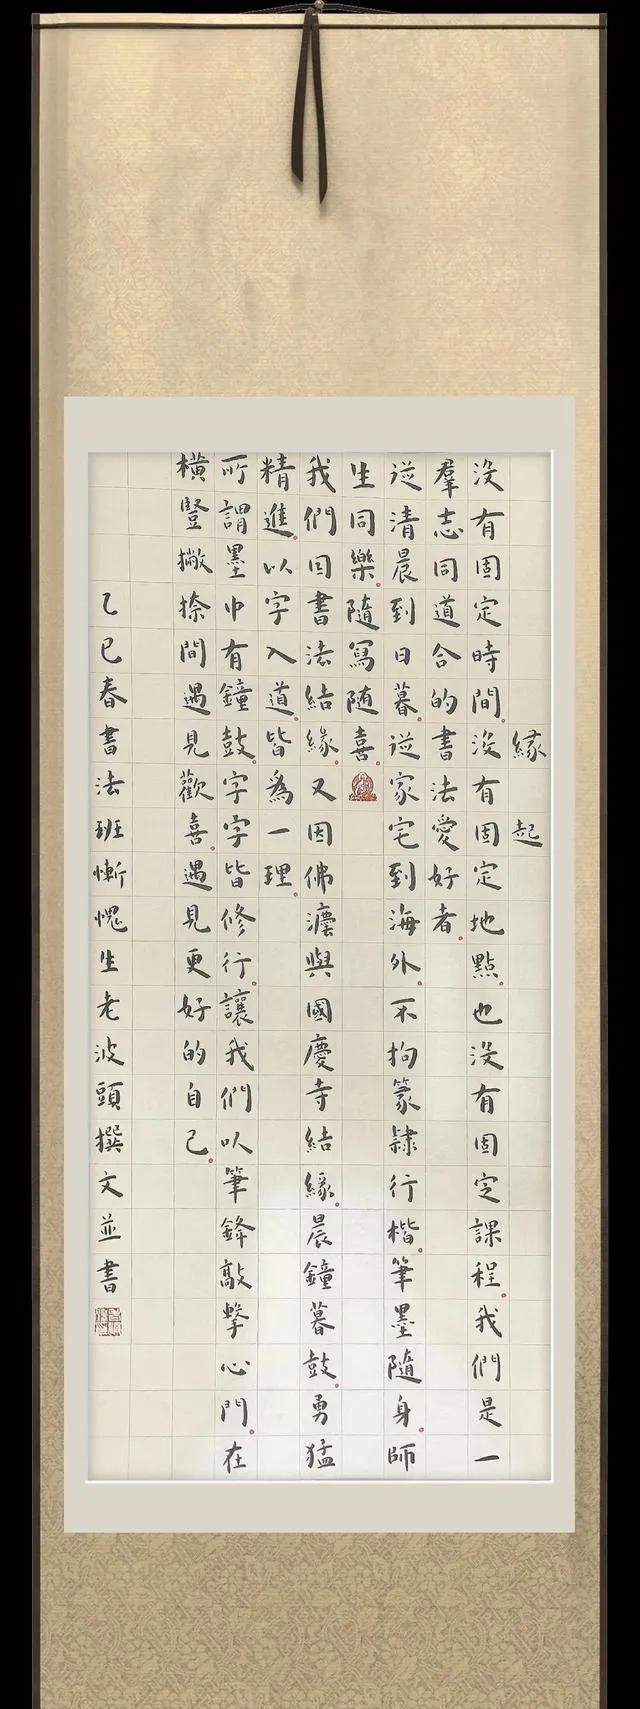 緣起
沒有固定時間。沒有固定地點。也沒有固定課程。我們是一
羣志同道合的書法愛好者。
從清晨到日暮。從家宅到海外。不拘篆隸行楷。筆墨隨身。師
生同樂。隨寫随喜。
我們因書法結緣。又因佛灋與國慶寺結緣。晨鐘暮鼓。勇猛
精進。以字入道。皆爲一理。
所謂墨中有鐘鼓。字字皆修行。讓我們以筆鋒敲擊心門。在
橫豎撇捺間遇見歡喜。遇見更好的自己。
乙巳春書法班慚愧生老波頭撰文並書